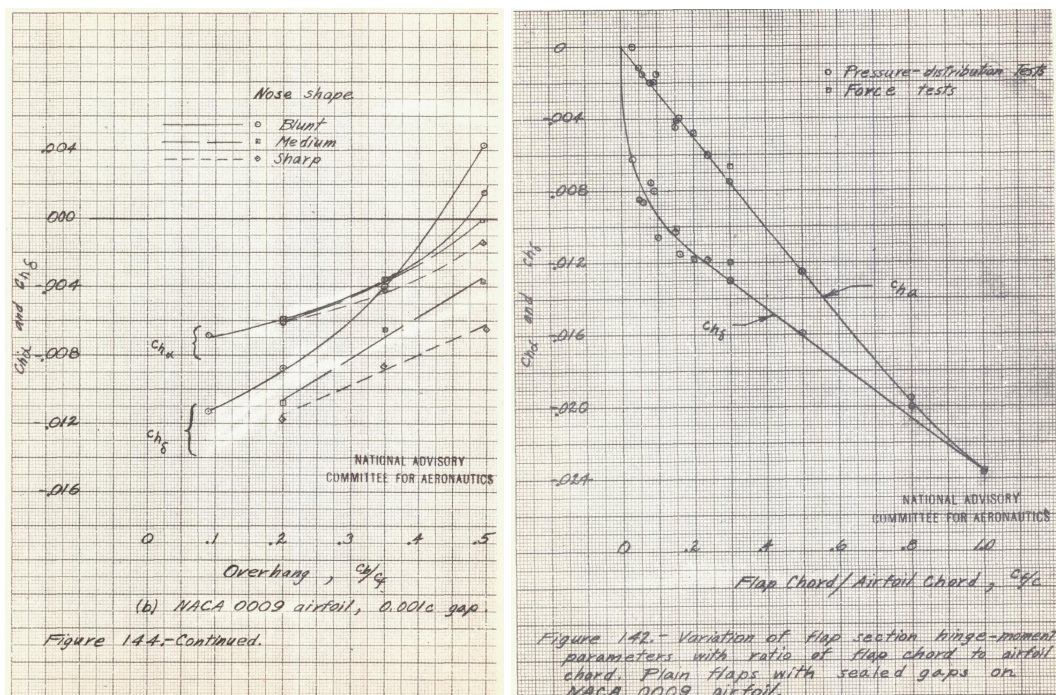 Nose shape
Blunt
Medium
Sharp
.004
.000
-.004
-.008
-.012
-.016
Chα and Chδ
Chα
Chδ
NATIONAL ADVISORY
COMMITTEE FOR AERONAUTICS
0 .1 .2 .3 .4 .5
Overhang, cb/cf
(b) NACA 0009 airfoil, 0.001c gap.
Figure 144.-Continued.
0
-.004
-.008
-.012
-.016
-.020
-.024
Chα and Chδ
Pressure-distribution Tests
Force tests
Chα
Chδ
NATIONAL ADVISORY
COMMITTEE FOR AERONAUTICS
0 .2 .4 .6 .8 1.0
Flap Chord/Airfoil Chord, cf/c
Figure 142.- Variation of flap section hinge-moment
parameters with ratio of flap chord to airfoil
chord. Plain flaps with sealed gaps on
NACA 0009 airfoil.